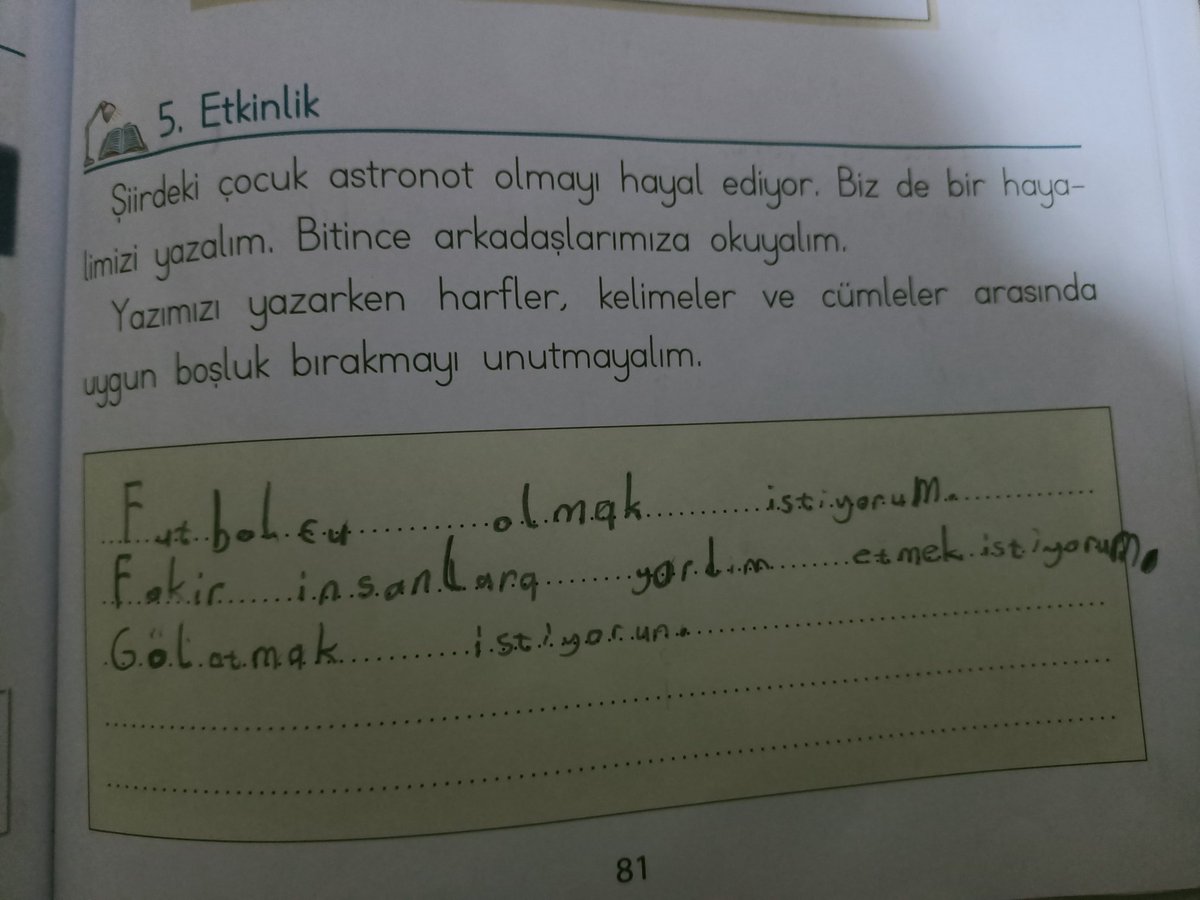 5. Etkinlik
Şiirdeki çocuk astronot olmayı hayal ediyor. Biz de bir haya-
limizi yazalım. Bitince arkadaşlarımıza okuyalım.
Yazımızı yazarken harfler, kelimeler ve cümleler arasında
uygun boşluk bırakmayı unutmayalım.
Futbolcu olmak istiyorum.
Fakir insanlara yardım etmek istiyorum.
Göl atmak istiyorun.
81